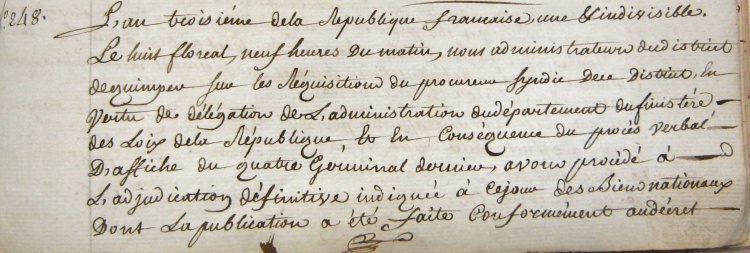 n° 248.
L'an troisiéme dela République francaise, une & indivisible.
Le huit floréal, neuf heures du matin, nous administrateurs du district
dequimper sur les Réquisition du procureur Syndic dece District, En
Vertu de délégation de L'administration dudépartement dufinistére
des Loix dela République Et En Conséquence du procès verbal
D'affiche du quatre Germinal dernier, avons procédé à
L'adjudication définitive indiquée à cejour des Biens nationaux
Dont La publication a été faite Conformément audécret